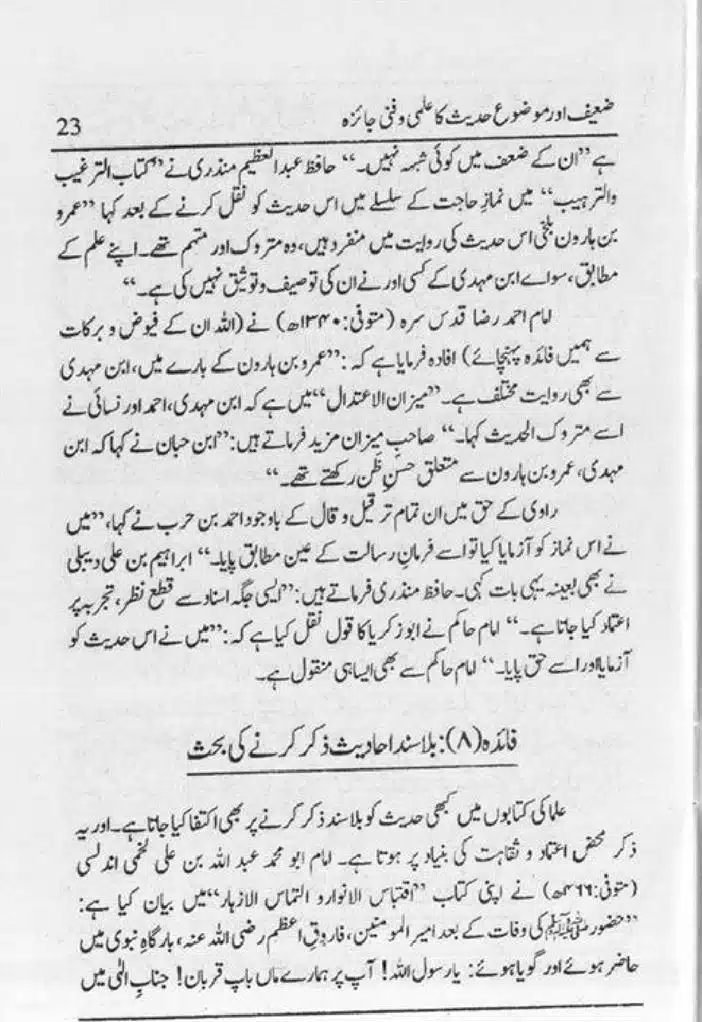 ضعیف اور موضوع حدیث کا علمی و فنی جائزہ
23
ہے ”ان کے ضعف میں کوئی شبہہ نہیں۔“ حافظ عبدالعظیم منذری نے ”کتاب الترغیب
والترہیب“ میں نمازِ حاجت کے سلسلے میں اس حدیث کو نقل کرنے کے بعد کہا ”عمرو
بن ہارون بلخی اس حدیث کی روایت میں منفرد ہیں، وہ متروک اور متہم تھے۔ اپنے علم کے
مطابق، سواے ابن مہدی کے کسی اور نے ان کی توصیف و توثیق نہیں کی ہے۔“
امام احمد رضا قدس سرہ (متوفی: ۱۳۴۰ھ) نے (اللہ ان کے فیوض و برکات
سے ہمیں فائدہ پہنچائے) افادہ فرمایا ہے کہ: ”عمرو بن ہارون کے بارے میں، ابن مہدی
سے بھی روایت مختلف ہے۔ ”میزان الاعتدال“ میں ہے کہ ابن مہدی، احمد اور نسائی نے
اسے متروک الحدیث کہا۔“ صاحبِ میزان مزید فرماتے ہیں: ”ابن حبان نے کہا کہ ابن
مہدی، عمرو بن ہارون سے متعلق حسنِ ظن رکھتے تھے۔“
راوی کے حق میں ان تمام تر قیل و قال کے باوجود احمد بن حرب نے کہا، ”میں
نے اس نماز کو آزمایا کیا تو اسے فرمانِ رسالت کے عین مطابق پایا۔“ ابراہیم بن علی دیبلی
نے بھی بعینہٖ یہی بات کہی۔ حافظ منذری فرماتے ہیں: ”ایسی جگہ اسناد سے قطع نظر، تجربہ پر
اعتماد کیا جاتا ہے۔“ امام حاکم نے ابو زکریا کا قول نقل کیا ہے کہ: ”میں نے اس حدیث کو
آزمایا اور اسے حق پایا۔“ امام حاکم سے بھی ایسا ہی منقول ہے۔
فائدہ (۸): بلا سند احادیث ذکر کرنے کی بحث
علما کی کتابوں میں کبھی حدیث کو بلا سند ذکر کرنے پر بھی اکتفا کیا جاتا ہے۔ اور یہ
ذکر محض اعتماد و ثقاہت کی بنیاد پر ہوتا ہے۔ امام ابو محمد عبد اللہ بن علی لخمی اندلسی
(متوفی: ۴۶۶ھ) نے اپنی کتاب ”اقتباس الانوار و التماس الازہار“ میں بیان کیا ہے:
”حضور ﷺ کی وفات کے بعد امیر المومنین، فاروقِ اعظم رضی اللہ عنہ، بارگاہِ نبوی میں
حاضر ہوئے اور گویا ہوئے: یا رسول اللہ! آپ پر ہمارے ماں باپ قربان! جنابِ الٰہی میں